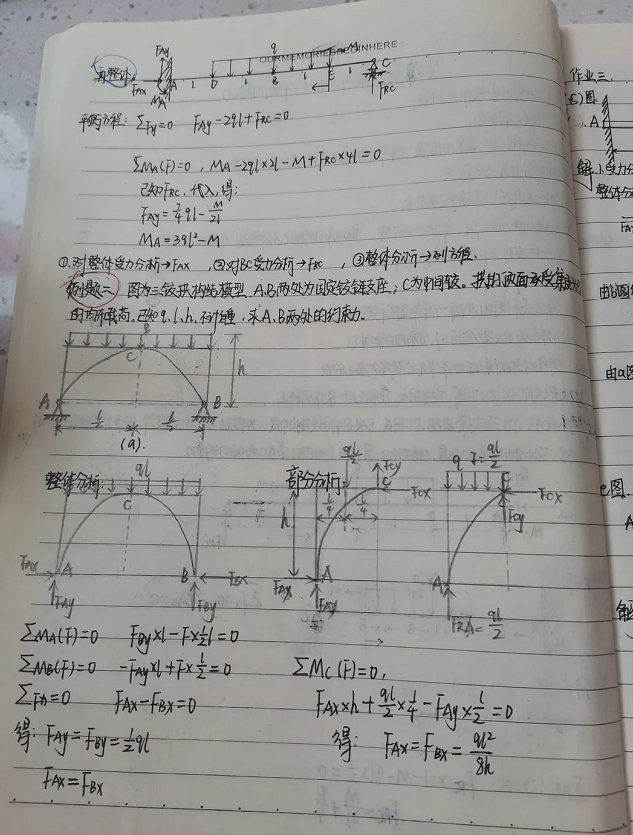 再整体:
FAy
FAx
MA
A
1
D
1
B
1
E
1
C
q
M
OURMEMORIESBEGINHERE
FRC
平衡方程: ΣFy=0 FAy-2ql+FRC=0
ΣMA(F)=0, MA-2ql×2l-M+FRC×4l=0
已知FRC, 代入, 得:
FAy=7/4ql-M/2l
MA=3ql²-M
①.对整体受力分析→FAX, ②对BC受力分析→FRC, ③整体分析→列方程.
例题二 图为三铰拱构结构模型, A、B两处为固定铰链支座; C为中间铰.
的均布载荷. 已知q、l、h, 不计自重, 求A、B两处的约束力.
q
C
h
A
B
l/2
l/2
(a).
整体分析:
ql
C
FAX
A
FAy
B
FBX
FBy
部分分析:
ql/2
FCy
C
FCX
h
l/4
l/4
FAX
A
FAy
q F=ql/2
C
FCX
FCy
A
FRA=ql/2
ΣMA(F)=0 FBy×l-F×½l=0
ΣMB(F)=0 -FAy×l+F×l/2=0
ΣFx=0 FAX-FBX=0
得: FAy=FBy=½ql
FAX=FBX
ΣMC(F)=0,
FAX×h+ql/2×l/4-FAy×l/2=0
得: FAX=FBX=ql²/8h
作业三.
A
解
1.受力分
整体分
由b图
由a图
c图.